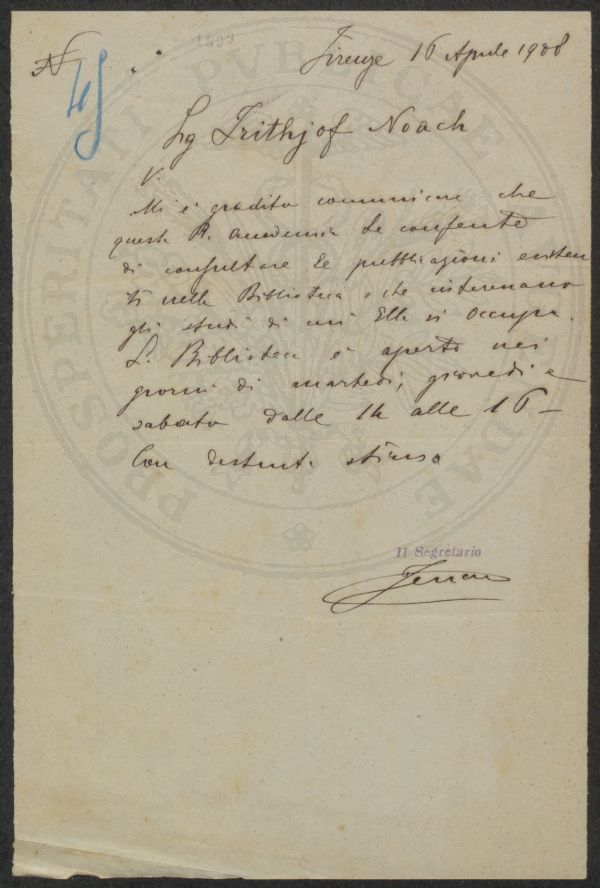 1599
Firenze 16 Aprile 1908
N
45
Sig Frithjof Noach
Mi è gradito comunicare che
questa R. Accademia Le consente
di consultare le pubblicazioni esisten
ti nella Biblioteca e che interessano
gli studi di cui Ella si occupa.
La Biblioteca è aperta nei
giorni di martedì, giovedì e
sabato dalle 14 alle 16 —
Con distinta stima
Il Segretario
PROSPERITATI PVBLICAE